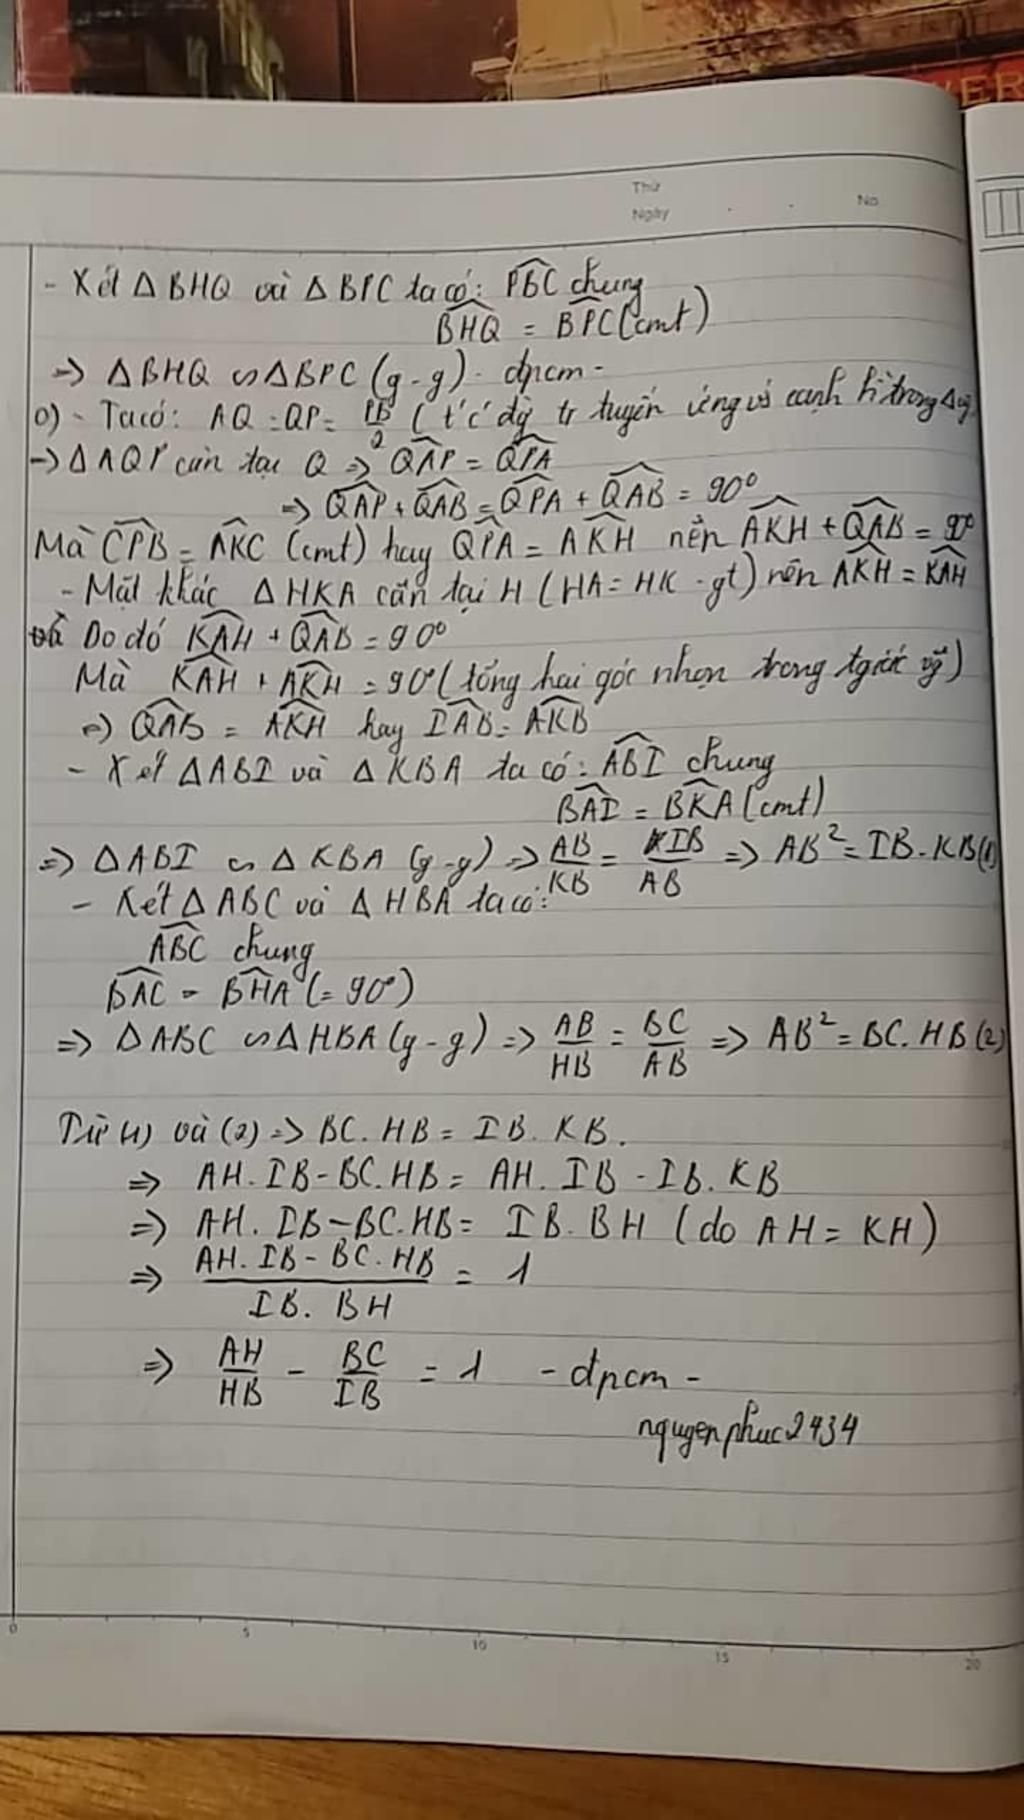 VER
Thứ
Ngày
No
- Xét △BHQ và △BPC ta có: PBC chung
BHQ = BPC (cmt)
=> △BHQ ∽ △BPC (g-g) - dpcm -
c) - Ta có: AQ = QP = PB/2 (t/c đg tr tuyến ứng vs cạnh h trong △
-> △AQP cân tại Q => QAP = QPA
=> QAP + QAB = QPA + QAB = 90°
Mà CPB = AKC (cmt) hay QPA = AKH nên AKH + QAB = 90°
- Mặt khác △HKA cân tại H (HA = HK - gt) nên AKH = KAH
Do đó KAH + QAB = 90°
Mà KAH + AKH = 90° (tổng hai góc nhọn trong tgiác vg)
=> QAB = AKH hay IAB = AKB
- Xét △ABI và △KBA ta có: ABI chung
BAI = BKA (cmt)
=> △ABI ∽ △KBA (g-g) => AB/KB = IB/AB => AB² = IB.KB (1)
- Xét △ABC và △HBA ta có:
ABC chung
BAC = BHA (= 90°)
=> △ABC ∽ △HBA (g-g) => AB/HB = BC/AB => AB² = BC.HB (2)
Từ (1) và (2) => BC.HB = IB.KB.
=> AH.IB - BC.HB = AH.IB - IB.KB
=> AH.IB - BC.HB = IB.BH (do AH = KH)
=> AH.IB - BC.HB / IB.BH = 1
=> AH/HB - BC/IB = 1 - dpcm -
nguyenphuc2434
0 5 10 15 20